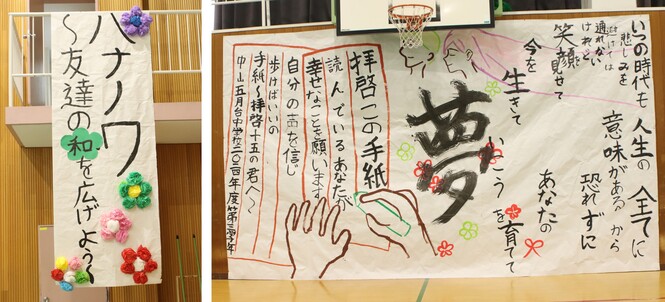 ハナノワ
〜友達の和を広げよう〜
いつの時代も
悲しみを
避けては
通れない
けれど
笑顔見せて
今を
生きて
いこう
人生の全てに
意味があるから
恐れずに
あなたの
夢
を育てて
拝啓この手紙
読んでいるあなたが
幸せなことを願います
自分の声を信じ
歩けばいいの
手紙〜拝啓十五の君へ〜
中山五月台中学校二〇二四年度第三学年